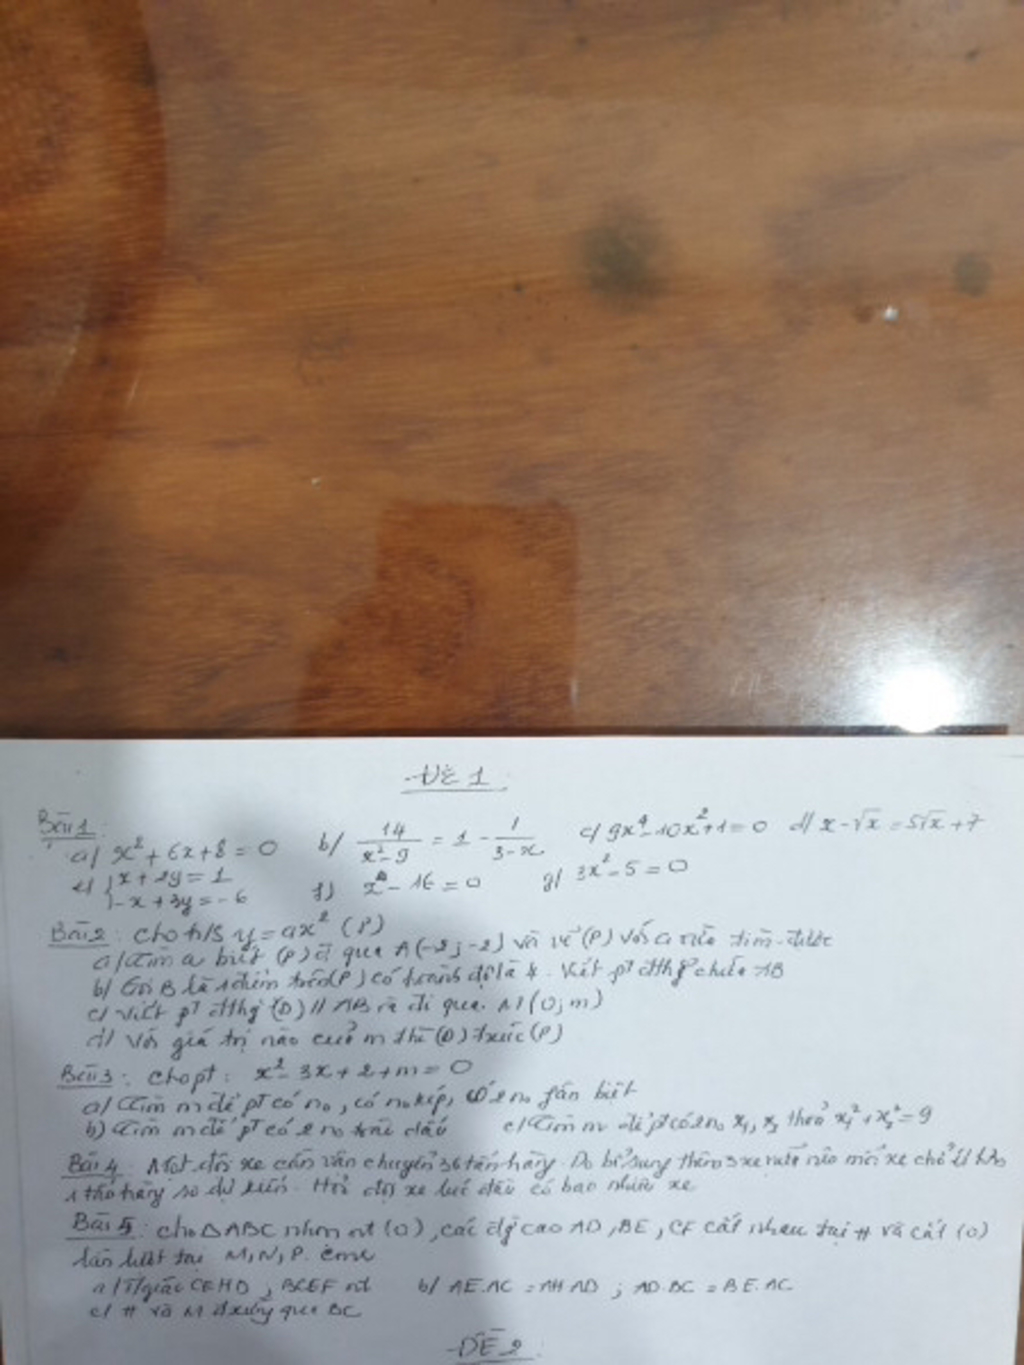 ĐỀ 1
Bài 1:
a/ x² + 6x + 8 = 0 b/ 14/(x² - 9) = 1 - 1/(3 - x) c/ 9x⁴ - 10x² + 1 = 0 d/ x - √x = 5√x + 7
e/ { x + 2y = 1 f) x⁴ - 16 = 0 g/ 3x² - 5 = 0
- x + 3y = - 6
Bài 2: cho h/s y = ax² (P)
a/ Tìm a biết (P) đi qua A(-2; -2) và vẽ (P) với a vừa tìm được
b/ Gọi B là 1 điểm trên (P) có hoành độ là 4. Viết pt đthg chứa AB
c/ Viết pt đthg (D) // AB và đi qua M(0; m)
d/ Với giá trị nào của m thì (D) txúc (P)
Bài 3: cho pt: x² - 3x + 2 + m = 0
a/ Tìm m để pt có no, có no kép, có 2 no fân biệt
b) Tìm m để pt có 2 no trái dấu c/ Tìm m để pt có 2 no x₁, x₂ thoả x₁² + x₂² = 9
Bài 4: Một đội xe cần vận chuyển 36 tấn hàng. Do bổ sung thêm 3 xe nữa nên mỗi xe chở ít hơn
1 tấn hàng so dự kiến. Hỏi đội xe lúc đầu có bao nhiêu xe
Bài 5: cho △ABC nhọn nt (O), các đg cao AD, BE, CF cắt nhau tại H và cắt (O)
lần lượt tại M, N, P. Cmr
a/ T/giác CEHD, BCEF nt b/ AE.AC = AH.AD ; AD.BC = BE.AC
c/ H và M đxứng qua BC
ĐỀ 2